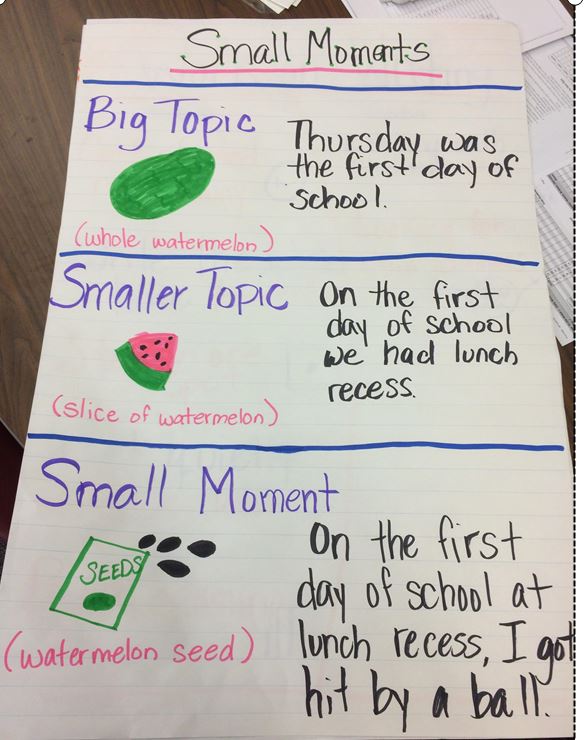 Small Moments
Big Topic
Thursday was
the first day of
school.
(whole watermelon)
Smaller Topic
On the first
day of school
we had lunch
recess.
(slice of watermelon)
Small Moment
SEEDS
(watermelon seed)
On the first
day of school at
lunch recess, I got
hit by a ball.